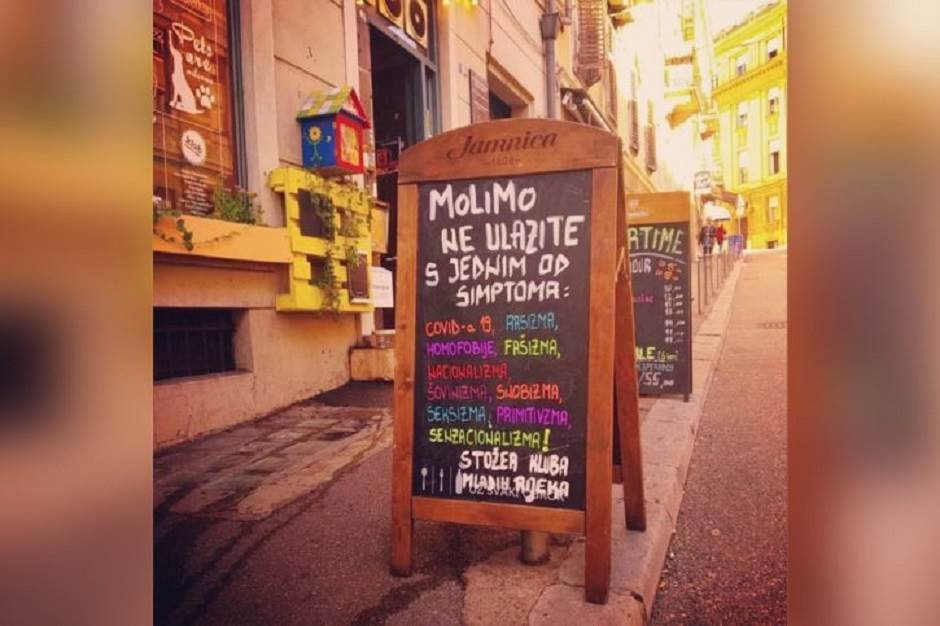 Pets
are
welcome
klub
Jamnica
MOLIMO
NE ULAZITE
S JEDNIM OD
SIMPTOMA:
COVID-a 19, RASIZMA,
HOMOFOBIJE, FAŠIZMA,
NACIONALIZMA,
ŠOVINIZMA, SNOBIZMA,
SEKSIZMA, PRIMITIVIZMA,
SENZACIONALIZMA!
STOŽER KLUBA
MLADIH RIJEKA
UZ SVAKI OBROK
RTIME